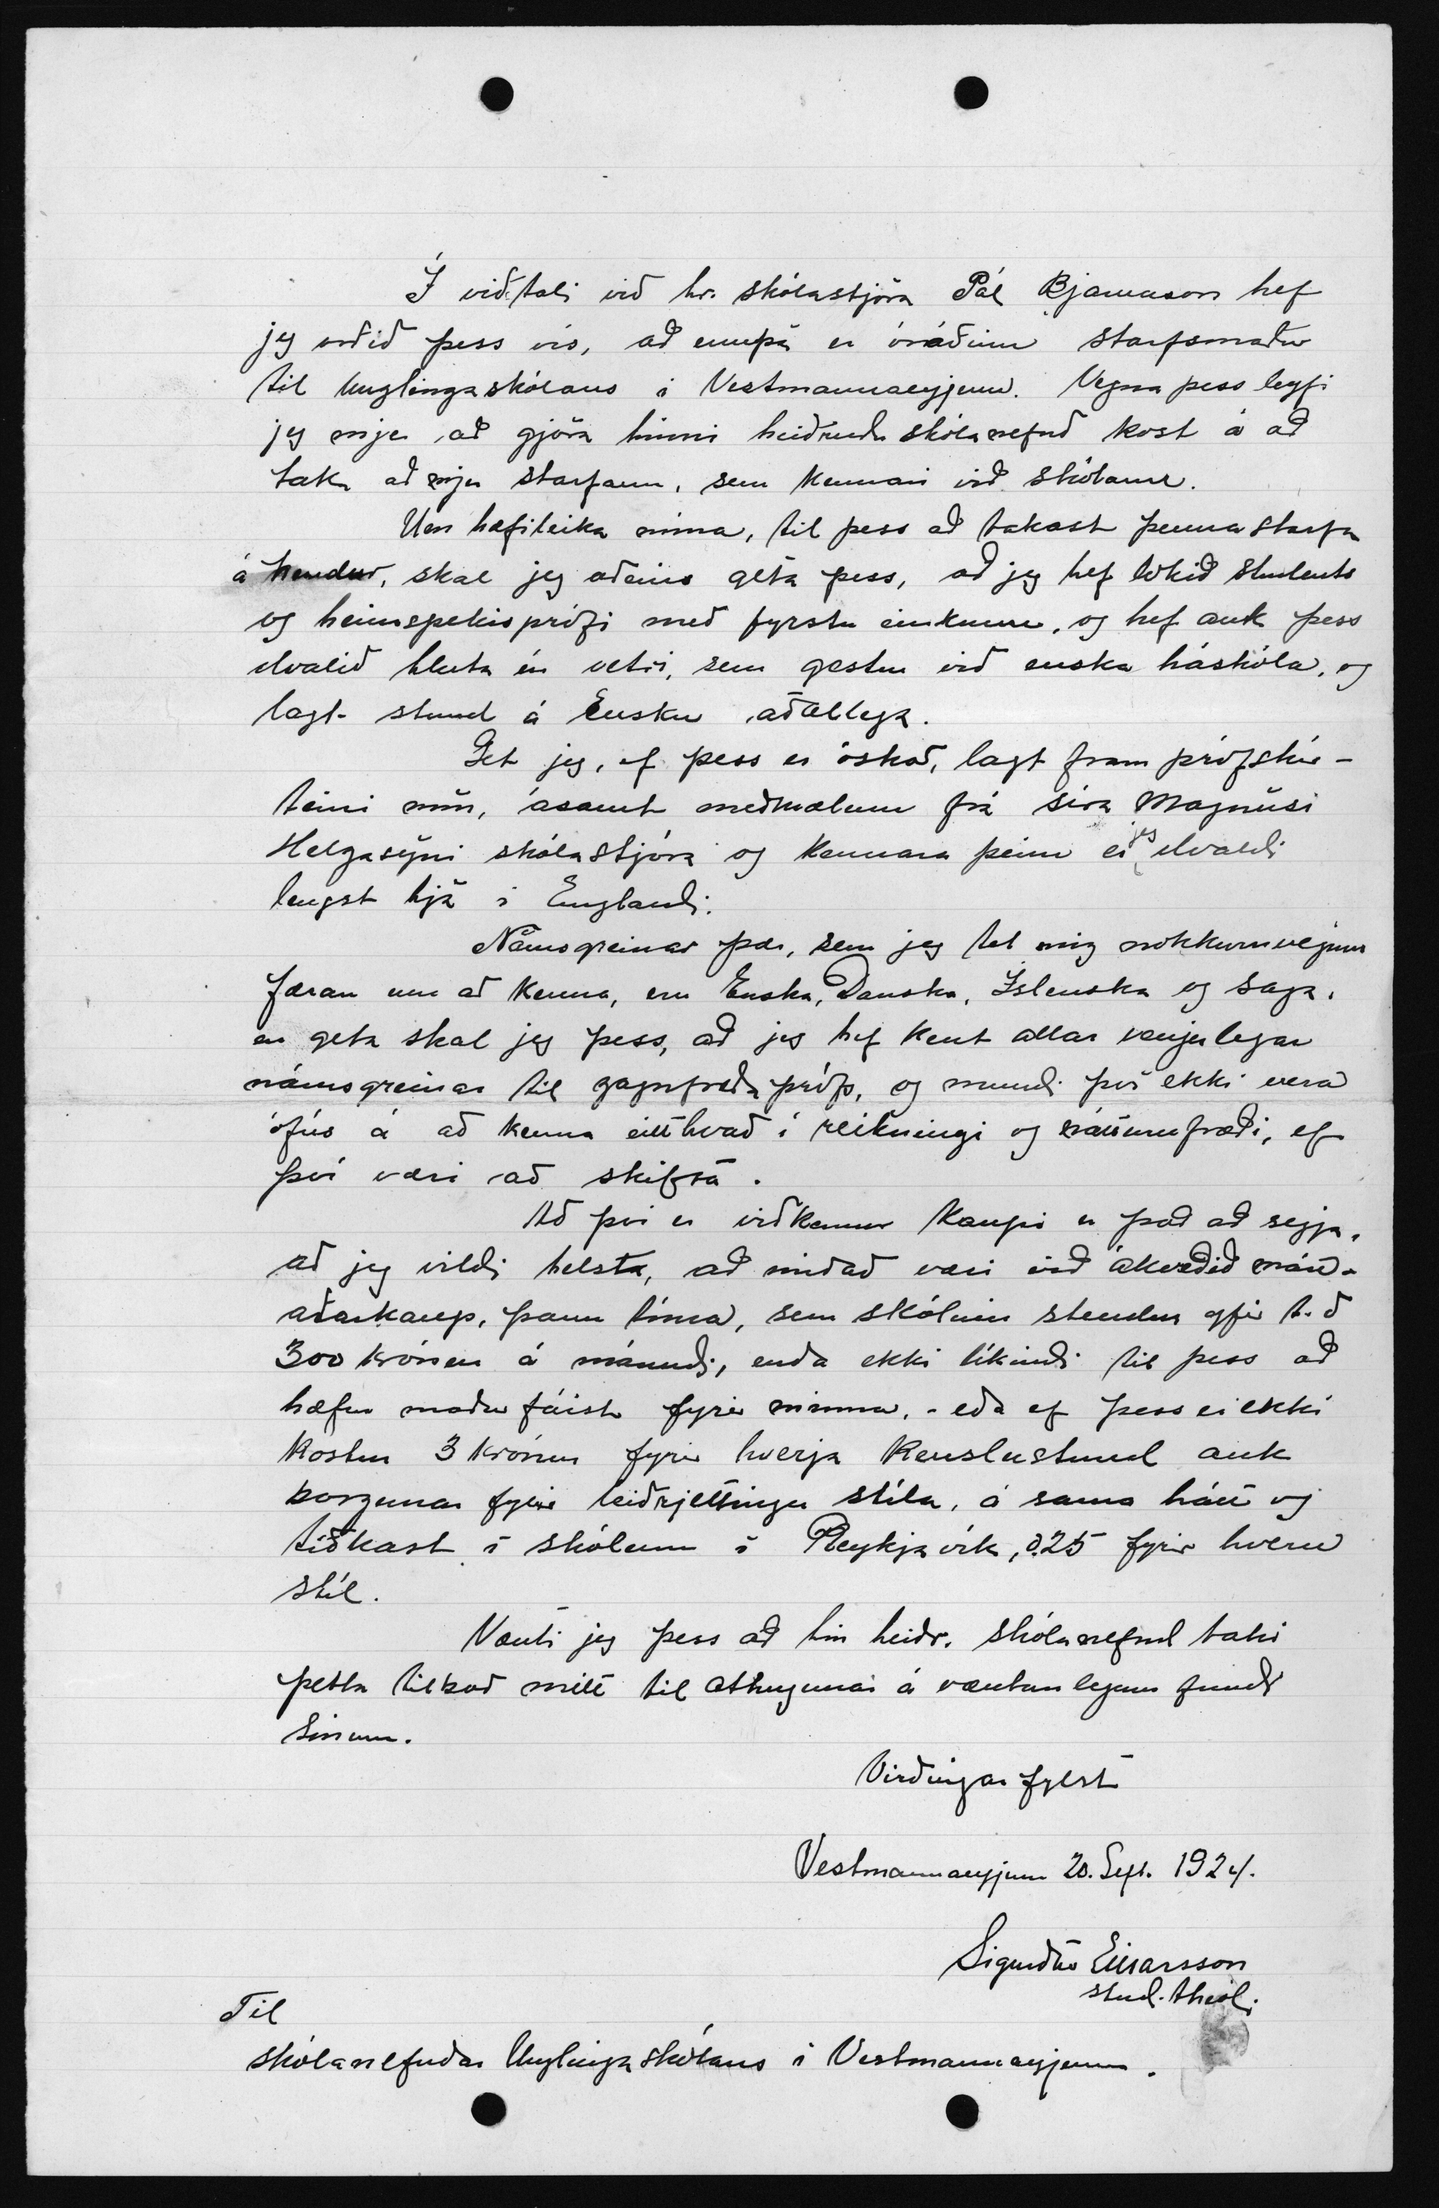 Í viðtali við hr. skólastjóra Pál Bjarnason hef
jeg orðið þess vís, að ennþá er óráðinn starfsmaður
til Unglingaskólans í Vestmannaeyjum. Vegna þess leyfi
jeg mjer að gjöra hinni heiðruðu skólanefnd kost á að
taka að mjer starfann, sem kennari við skólann.
Um hæfileika mína, til þess að takast þenna starfa
á hendur, skal jeg aðeins geta þess, að jeg hef lokið stúdents
og heimspekisprófi með fyrstu einkunn, og hef auk þess
dvalið hluta úr vetri, sem gestur við enska háskóla, og
lagt stund á Ensku aðallega.
Get jeg, ef þess er óskað, lagt fram prófskír-
teini mín, ásamt meðmælum frá síra Magnúsi
Helgasyni skólastjóra og kennara þeim er jeg dvaldi
lengst hjá í Englandi.
Námsgreinar þær, sem jeg tel mig nokkurnveginn
færan um að kenna, eru Enska, Danska, Íslenska og Saga,
en geta skal jeg þess, að jeg hef kent allar venjulegar
námsgreinar til gagnfræðaprófs, og mundi því ekki vera
ófús á að kenna eitthvað í reikningi og náttúrufræði, ef
því væri að skifta.
Að því er viðkemur kaupi er það að segja,
að jeg vildi helst, að miðað væri við ákveðið mán-
aðarkaup, þann tíma, sem skólinn stendur yfir t.d
300 krónur á mánuði, enda ekki líkindi til þess að
hæfur maður fáist fyrir minna, - eða ef þess er ekki
kostur 3 krónur fyrir hverja kenslustund auk
borgunar fyrir leiðrjettingu stíla, á sama hátt og
tíðkast í skólum í Reykjavík, 0.25 fyrir hvern
stíl.
Vænti jeg þess að hin heiðr. skólanefnd taki
þetta tilboð mitt til athugunar á væntanlegum fundi
sínum.
Virðingarfylst
Vestmannaeyjum 20. Sept. 1924.
Sigurður Einarsson
stud. theol.
Til
skólanefndar Unglingaskólans í Vestmannaeyjum.